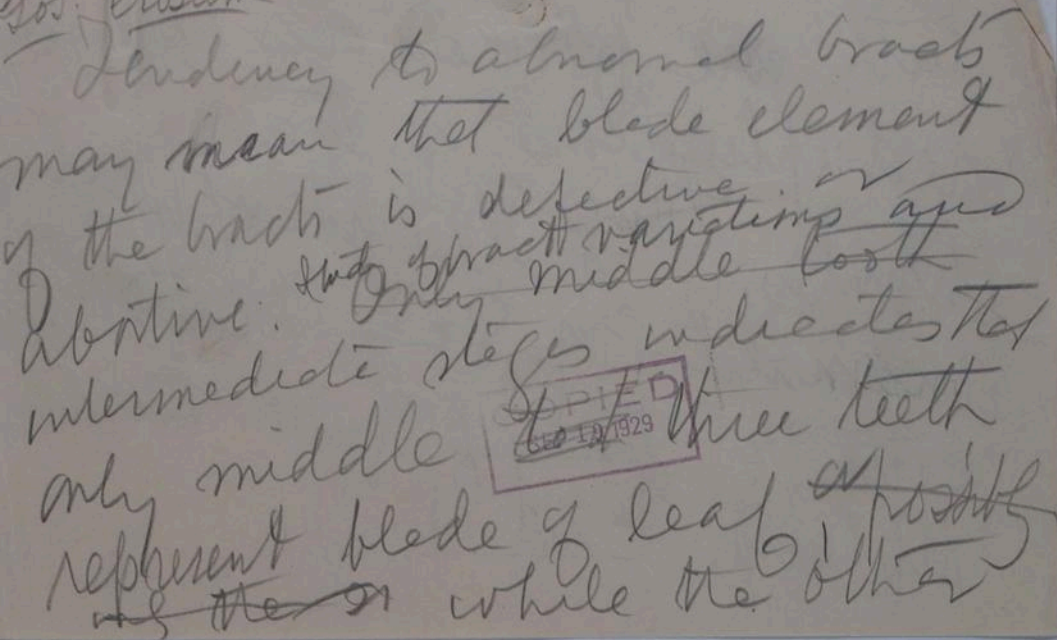 Tendency to abnormal bracts
may mean that blade element
of the bracts is defective or
abortive. Study of bract variations and
Only middle tooth
intermediate stages indicates that
only middle three teeth
represent blade of leaf or possibly
of the while the other
COPIED
SEP 1929